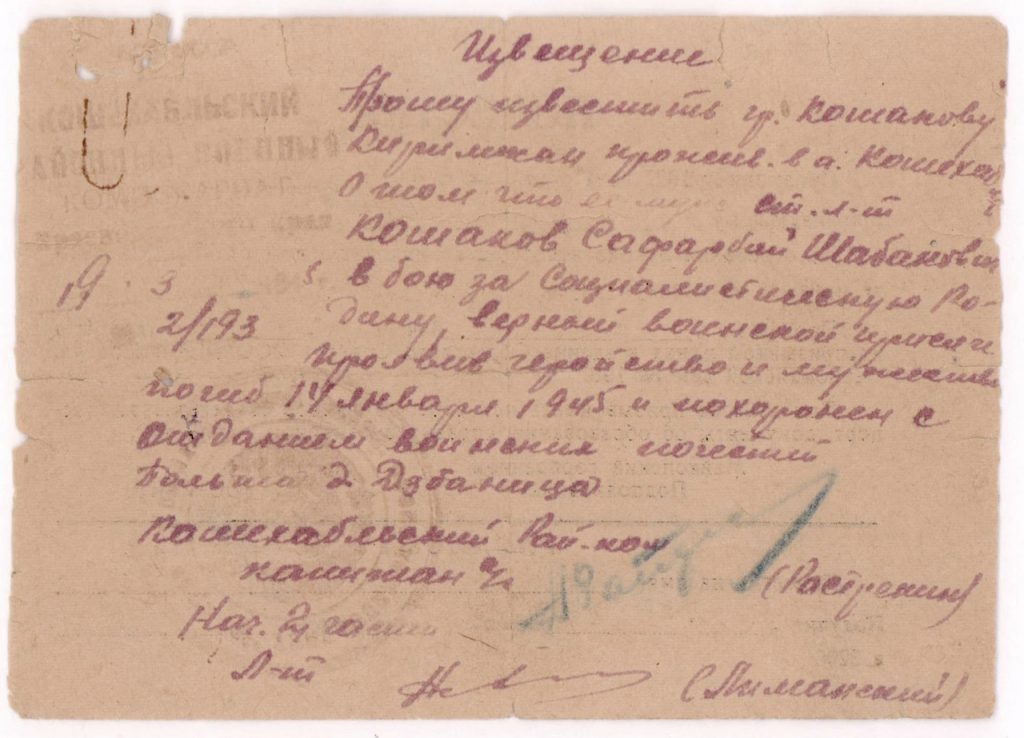 Извещение
Прошу известить гр. Кошакову
Киримхан прожив. в а. Кошехабль
О том что ее муж ст. л-т
Кошаков Сафарбий Шабанович
19 . 3 5 в бою за Социалистическую Ро-
2/193 дину, верный воинской присяги
проявив геройство и мужество
погиб 14 января 1945 и похоронен с
отданием воинских почестей
Польша д. Дзбаница
Кошехабльский Рай-ком
капитан а/с (Растренин)
Нач. 2 части
Л-т (Лиманский)